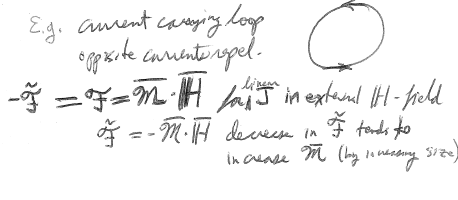 E.g. current carrying loop
opposite currents repel.
-𝓕̃ = 𝓕 = 𝓜̄·ℍ̄ for linear J̄ in external ℍ-field
𝓕̃ = -𝓜̄·ℍ̄ decrease in 𝓕̃ tends to
increase 𝓜̄ (by increasing size)